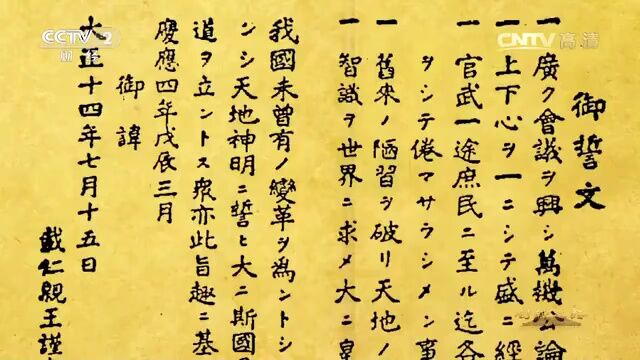 CCTV 2
财经
CNTV 高清
御誓文
一 廣ク會議ヲ興シ萬機公論
一 上下心ヲ一ニシテ盛ニ經
一 官武一途庶民ニ至ル迄各
ヲシテ倦マサラシメン事
一 舊來ノ陋習ヲ破リ天地ノ
一 智識ヲ世界ニ求メ大ニ皇
我國未曾有ノ變革ヲ為ントシ
ンシ天地神明ニ誓ヒ大ニ斯國
道ヲ立ントス衆亦此旨趣ニ基
慶應四年戊辰三月
御諱
大正十四年七月十五日
載仁親王謹